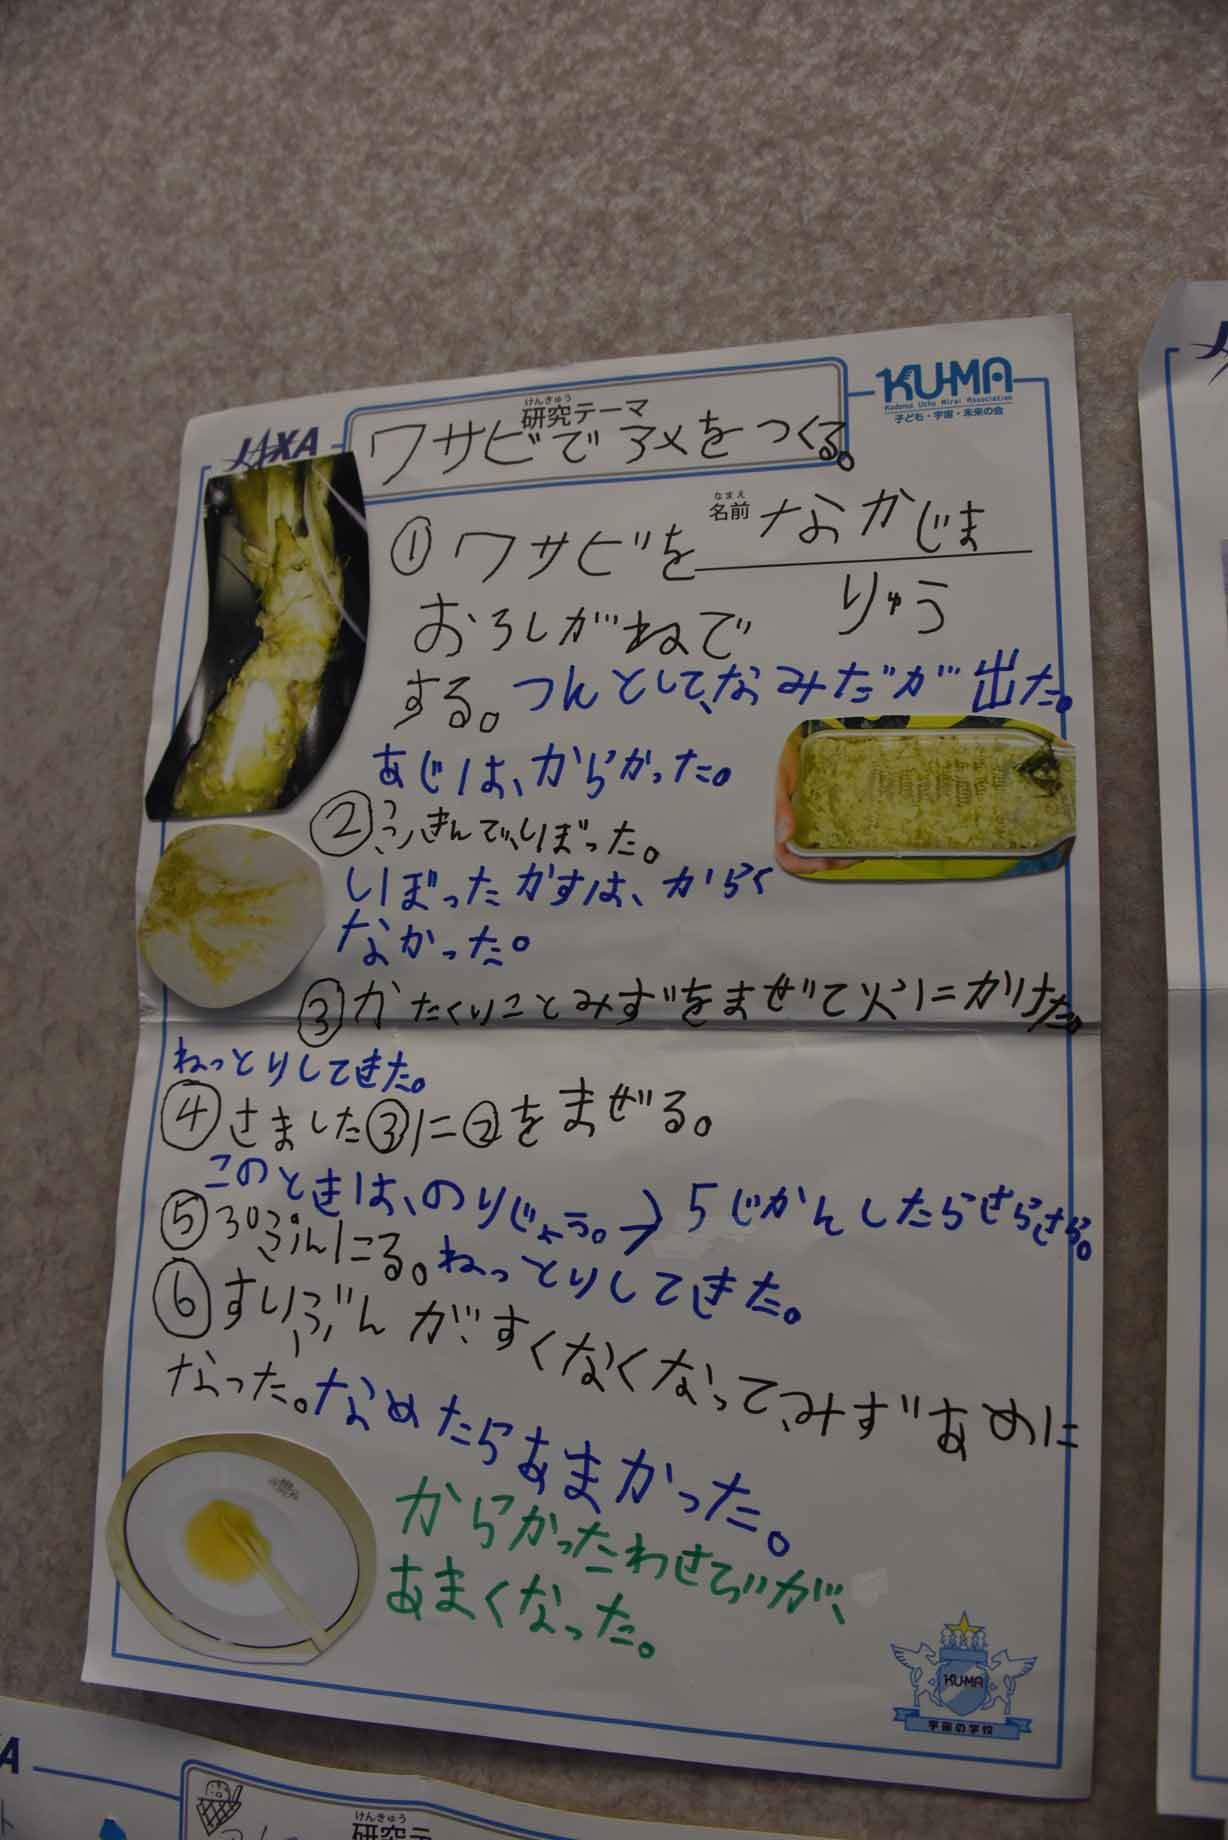 JAXA
けんきゅう
研究テーマ
KU-MA
Kodomo Uchu Mirai Association
子ども・宇宙・未来の会
ワサビでアメをつくる。
なまえ
名前 なかじま
りゅう
①ワサビを
おろしがねで
する。つんとして、なみだが出た。
あじは、からかった。
②ふきんで、しぼった。
しぼったかすは、からく
なかった。
③かたくりことみずをまぜて火にかけた。
ねっとりしてきた。
④さました③に②をまぜる。
このときは、のりじょう。→5じかんしたらさらさら。
⑤30ぷんにる。ねっとりしてきた。
⑥すいぶんがすくなくなって、みずあめに
なった。なめたらあまかった。
からかったわさびが、
あまくなった。
KU-MA
宇宙の学校
けんきゅう
研究テ